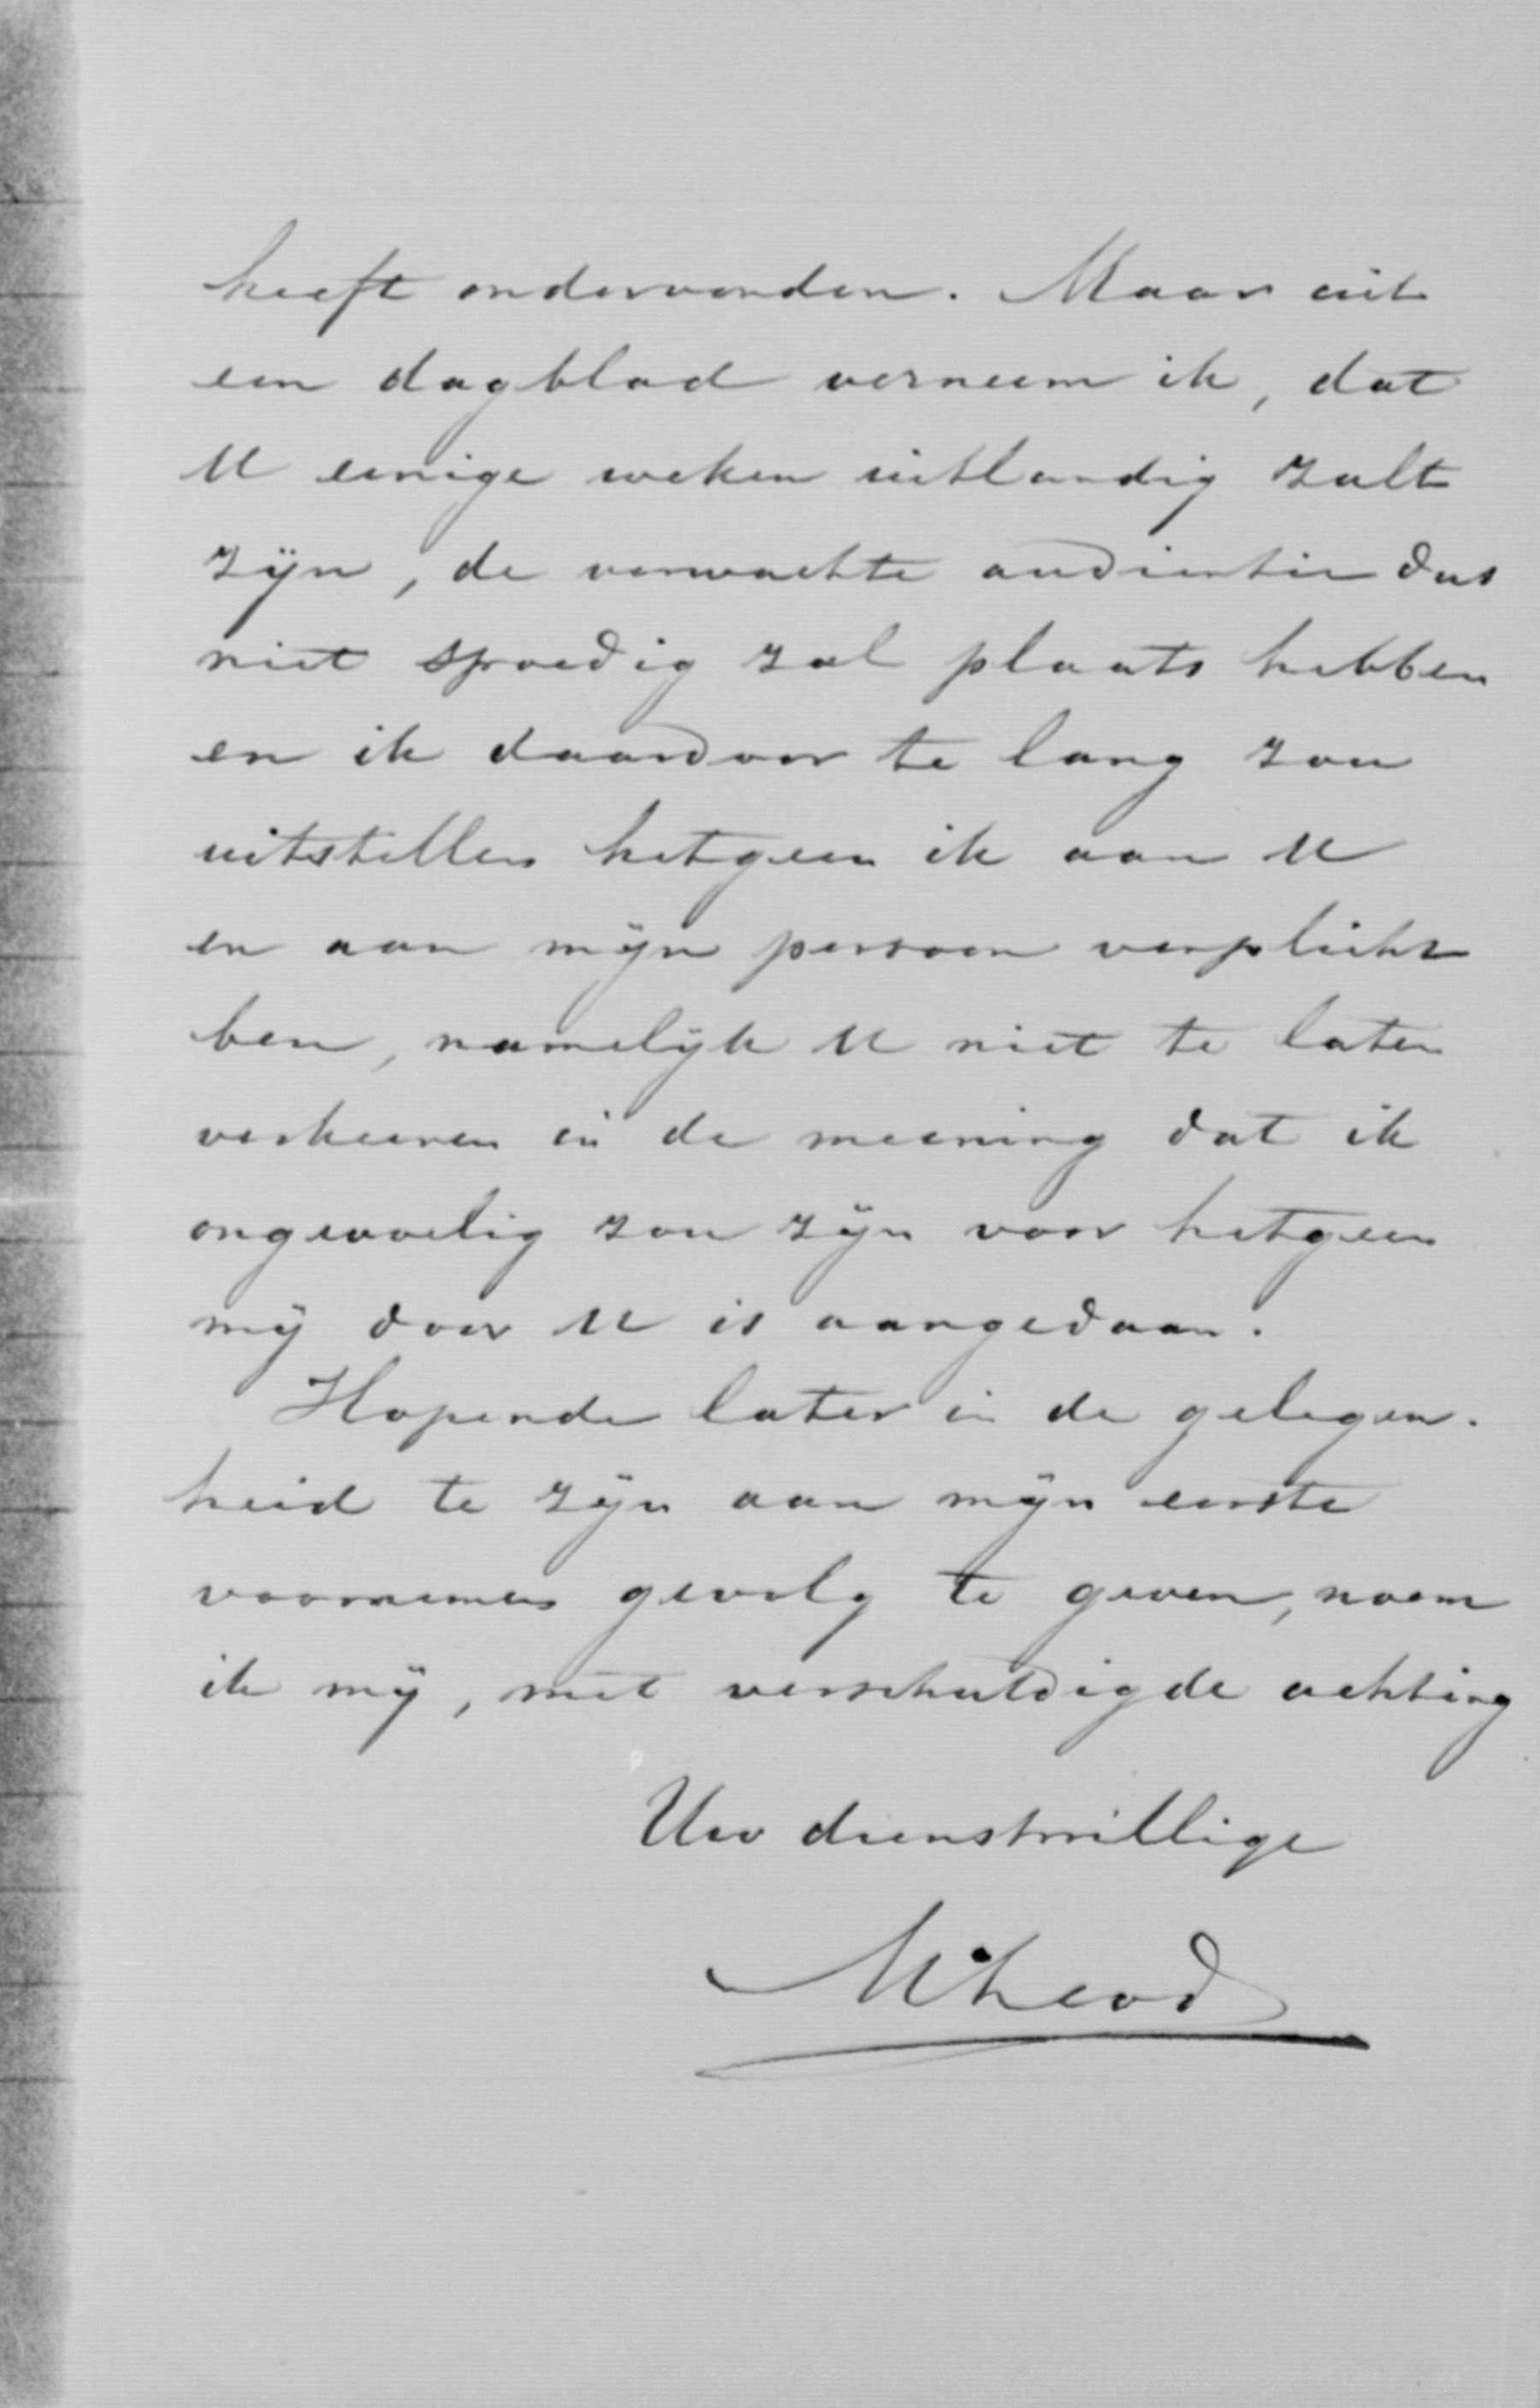 heeft ondervonden. Maar uit
een dagblad verneem ik, dat
U eenige weken uitlandig zult
zijn, de verwachte audientie dus
niet spoedig zal plaats hebben
en ik daardoor te lang zou
uitstellen hetgeen ik aan U
en aan mijn persoon verplicht
ben, namelijk U niet te laten
verkeeren in de meening dat ik
ongevoelig zou zijn voor hetgeen
mij door U is aangedaan.
Hopende later in de gelegen-
heid te zijn aan mijn eerste
voornemen gevolg te geven, noem
ik mij, met verschuldigde achting
Uw dienstwillige
McLeod